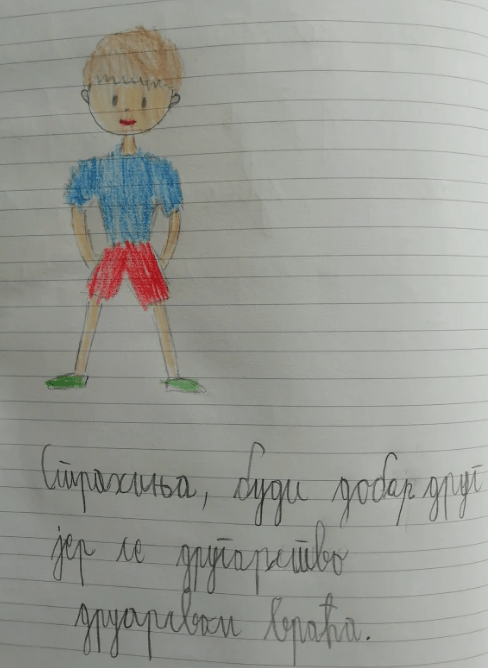 Страхиња, буди добар друг
јер се другарство
друарсвом враћа.